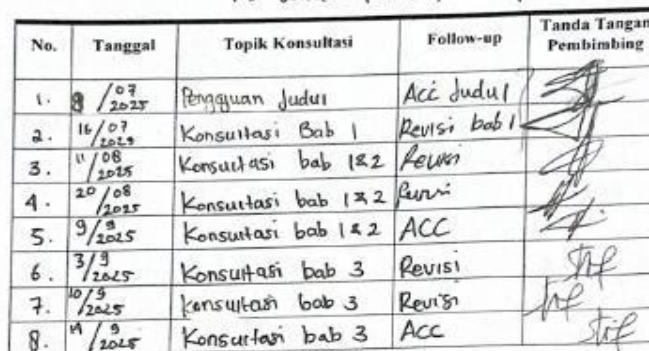 No. Tanggal Topik Konsultasi Follow-up Tanda Tangan Pembimbing
1. 8/07 2025 Pengajuan Judul Acc Judul
2. 16/07 2025 Konsultasi Bab 1 Revisi bab 1
3. 11/08 2025 Konsultasi bab 1&2 Revisi
4. 20/08 2025 Konsultasi bab 1&2 Revisi
5. 9/9 2025 Konsultasi bab 1&2 ACC
6. 3/9 2025 Konsultasi bab 3 Revisi
7. 10/9 2025 Konsultasi bab 3 Revisi
8. /9 2025 Konsultasi bab 3 Acc